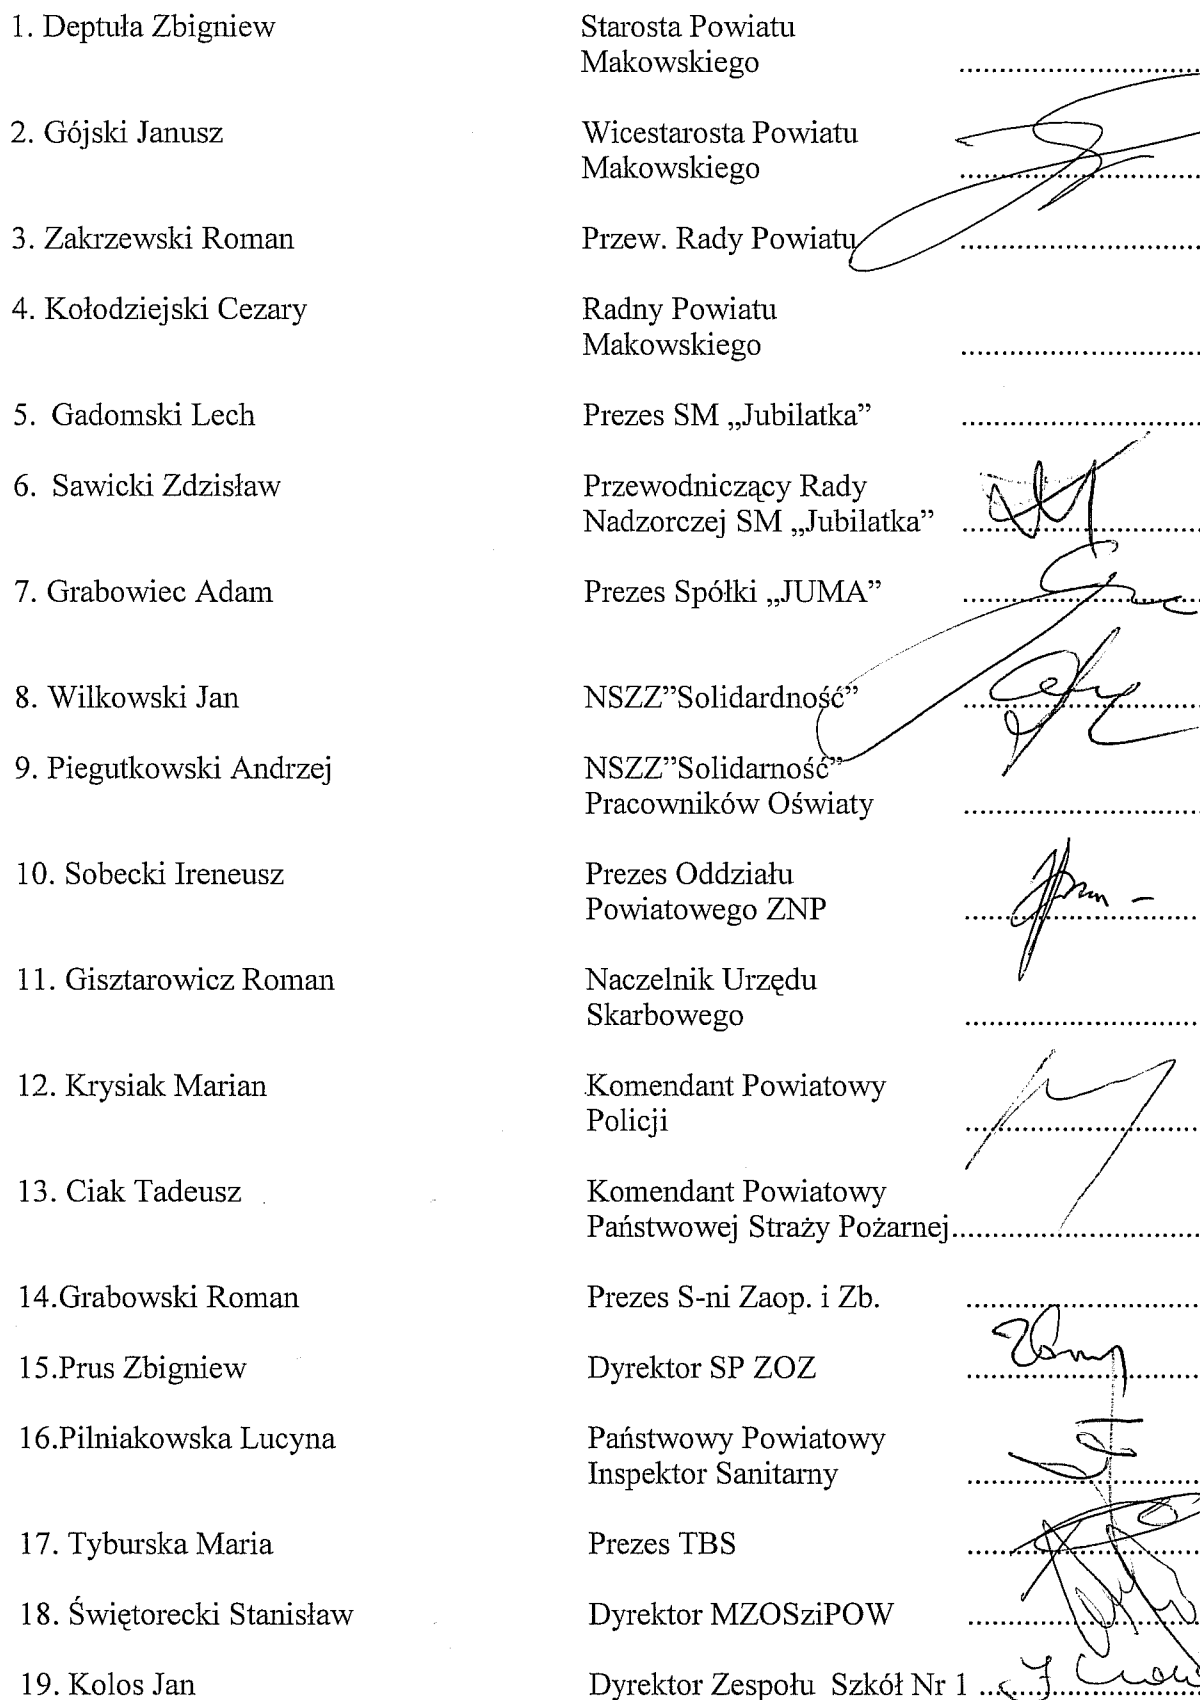 1. Deptuła Zbigniew Starosta Powiatu
Makowskiego ..............................
2. Gójski Janusz Wicestarosta Powiatu
Makowskiego ..............................
3. Zakrzewski Roman Przew. Rady Powiatu ..............................
4. Kołodziejski Cezary Radny Powiatu
Makowskiego ..............................
5. Gadomski Lech Prezes SM „Jubilatka” ..............................
6. Sawicki Zdzisław Przewodniczący Rady
Nadzorczej SM „Jubilatka” ..............................
7. Grabowiec Adam Prezes Spółki „JUMA” ..............................
8. Wilkowski Jan NSZZ”Solidardność” ..............................
9. Piegutkowski Andrzej NSZZ”Solidarność”
Pracowników Oświaty ..............................
10. Sobecki Ireneusz Prezes Oddziału
Powiatowego ZNP ..............................
11. Gisztarowicz Roman Naczelnik Urzędu
Skarbowego ..............................
12. Krysiak Marian Komendant Powiatowy
Policji ..............................
13. Ciak Tadeusz Komendant Powiatowy
Państwowej Straży Pożarnej..............................
14.Grabowski Roman Prezes S-ni Zaop. i Zb. ..............................
15.Prus Zbigniew Dyrektor SP ZOZ ..............................
16.Pilniakowska Lucyna Państwowy Powiatowy
Inspektor Sanitarny ..............................
17. Tyburska Maria Prezes TBS ..............................
18. Świętorecki Stanisław Dyrektor MZOSziPOW ..............................
19. Kolos Jan Dyrektor Zespołu Szkół Nr 1 ..............................